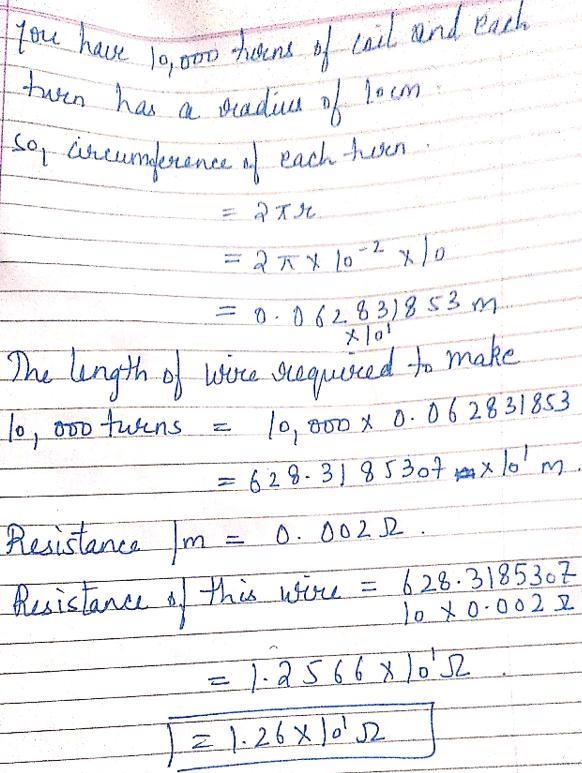 you have 10,000 turns of coil and each
turn has a radius of 10cm.
So, circumference of each turn.
= 2πr
= 2π × 10⁻² × 10
= 0.062831853 m
× 10¹
The length of wire required to make
10,000 turns = 10,000 × 0.062831853
= 628.3185307 × 10¹ m.
Resistance /m = 0.002 Ω.
Resistance of this wire = 628.3185307
10 × 0.002 Ω
= 1.2566 × 10¹ Ω.
= 1.26 × 10¹ Ω